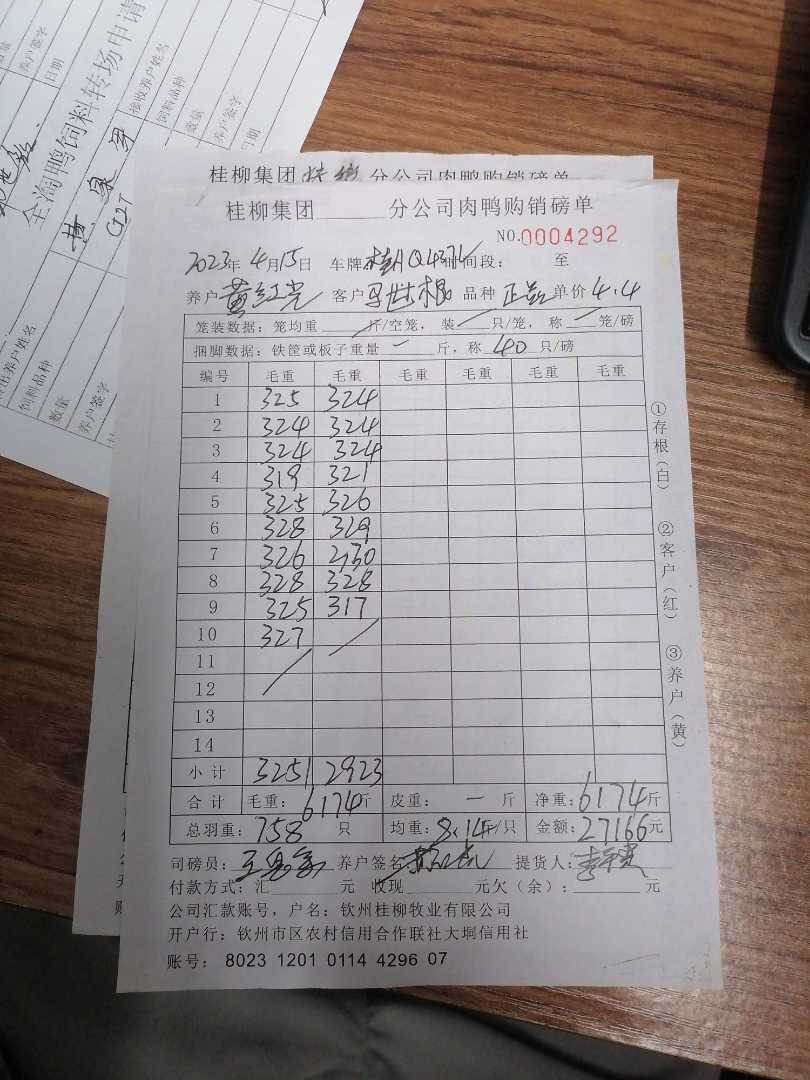 养户签字
日期
全淘鸭饲料转场申请
G2T
接收养户姓名
饲料品种
数量
养户签字
日期
饲料品种
数量
养户签字
桂柳集团 分公司肉鸭购销磅单
桂柳集团 分公司肉鸭购销磅单
NO.0004292
2023年 4月15日 车牌 Q4374 时间段: 至
养户 黄红光 客户 品种 单价 4.4
笼装数据:笼均重 斤/空笼, 装 只/笼, 称 笼/磅
捆脚数据:铁筐或板子重量 一 斤,称 40 只/磅
编号 毛重 毛重 毛重 毛重 毛重 毛重
1 325 324
2 324 324
3 324 324
4 319 321
5 325 326
6 328 329
7 326 330
8 328 328
9 325 317
10 327
11
12
13
14
小计 3251 2923
合计 毛重: 6174斤 皮重: 一 斤 净重: 6174斤
总羽重: 758 只 均重: 8.14斤/只 金额: 27166元
司磅员: 养户签名 提货人:
付款方式:汇 元 收现 元欠(余): 元
公司汇款账号,户名:钦州桂柳牧业有限公司
开户行:钦州市区农村信用合作联社大垌信用社
账号: 8023 1201 0114 4296 07
①存根(白)
②客户(红)
③养户(黄)